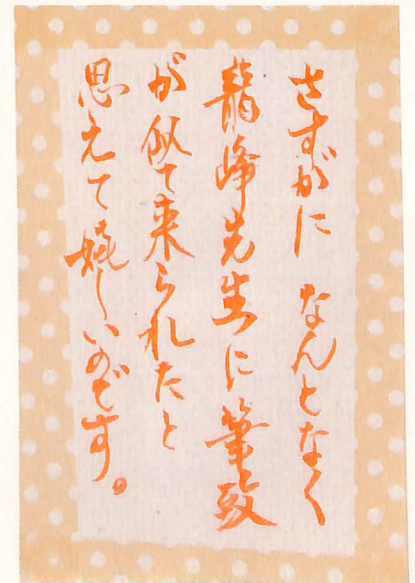 さすがに なんとなく
龍峰先生に筆致
が似て来られたと
思えて嬉しいのです。